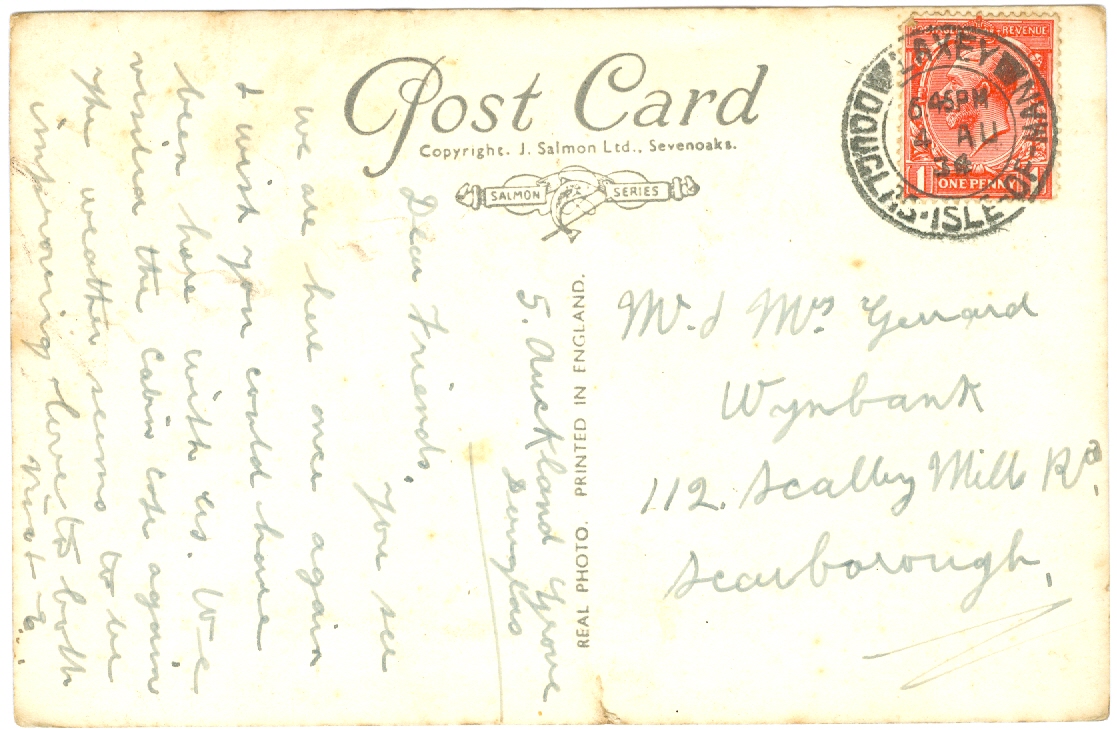 Post Card
Copyright. J. Salmon Ltd., Sevenoaks.
SALMON SERIES
REVENUE
1 ONE PENNY
LAXEY
DOUGLAS·ISLE-OF-MAN
6 45PM
4 AU
34
REAL PHOTO. PRINTED IN ENGLAND.
5. Auckland Grove
Douglas
Dear Friends,
You see
we are here once again
I wish you could have
been here with us. We
visited the cabin again
the weather seems to be
improving. love to both
Mr. & Mrs Gerrard
Wynbank
112. Scalby Mills Rd.
Scarborough,